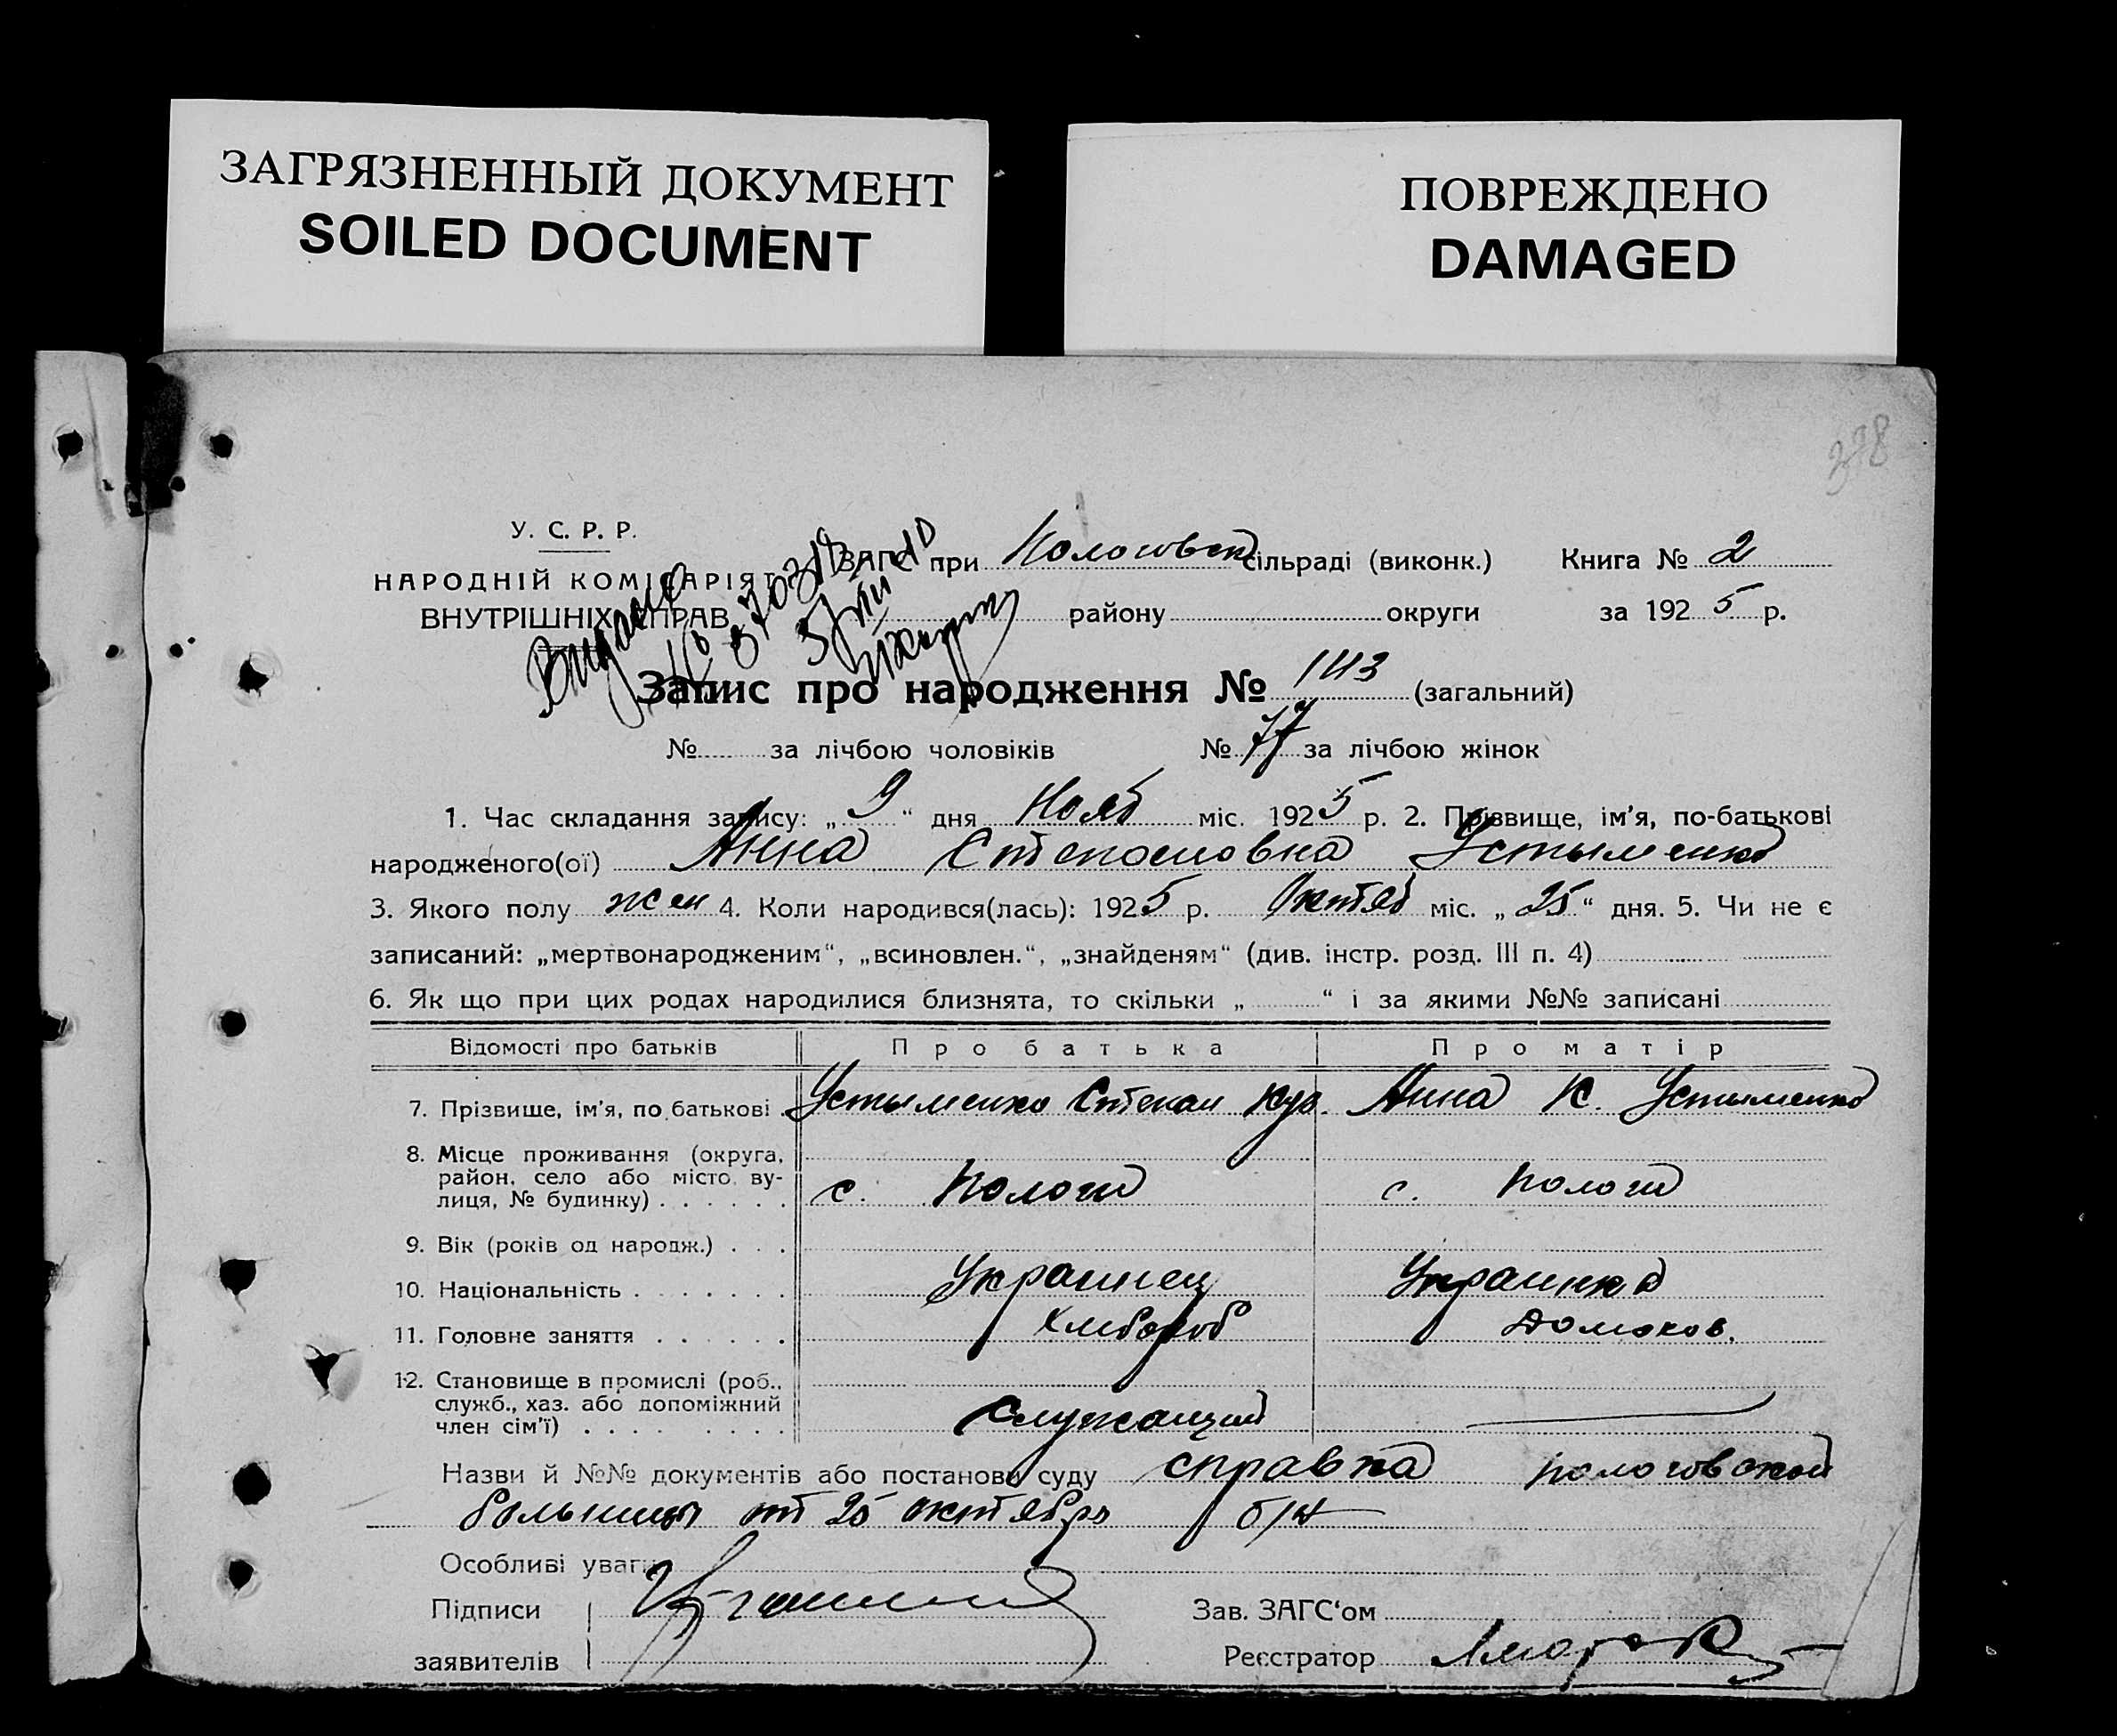 ЗАГРЯЗНЕННЫЙ ДОКУМЕНТ
SOILED DOCUMENT
ПОВРЕЖДЕНО
DAMAGED
У. С. Р. Р.
НАРОДНІЙ КОМІСАРІЯТ
ВНУТРІШНІХ СПРАВ
ЗАГС при Пологовск сільраді (виконк.) Книга № 2
району округи за 1925 р.
Видано
Запис про народження № 143 (загальний)
№ за лічбою чоловіків № 77 за лічбою жінок
1. Час складання запису: „ 9 “ дня Нояб міс. 1925 р. 2. Прізвище, ім'я, по-батькові
народженого(ої) Анна Устыменко
3. Якого полу жен 4. Коли народився(лась): 1925 р. Октяб міс. „ 25 “ дня. 5. Чи не є
записаний: „мертвонародженим“, „всиновлен.“, „знайденям“ (див. інстр. розд. III п. 4)
6. Як що при цих родах народилися близнята, то скільки „ “ і за якими №№ записані
Відомості про батьків Про батька Про матір
7. Прізвище, ім'я, по батькові Устыменко Степан Анна К. Устыменко
8. Місце проживання (округа,
район, село або місто, ву-
лиця, № будинку) с. Пологи с. Пологи
9. Вік (років од народж.)
10. Національність Украинец Украинка
11. Головне заняття Хлебороб Домохоз.
12. Становище в промислі (роб.,
служб., хаз. або допоміжний
член сім'ї) Служащий
Назви й №№ документів або постанови суду справка Пологовской
больницы от 25 октября б/н
Особливі уваги
Підписи Зав. ЗАГС'ом
заявителів Реєстратор